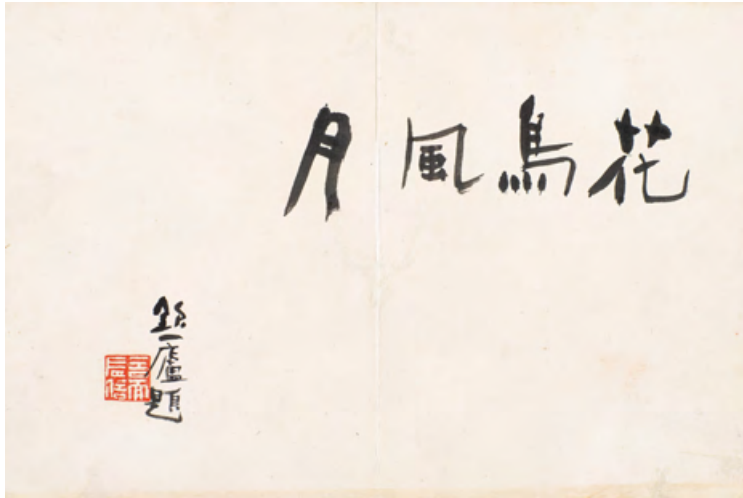 花鳥風月
廬題